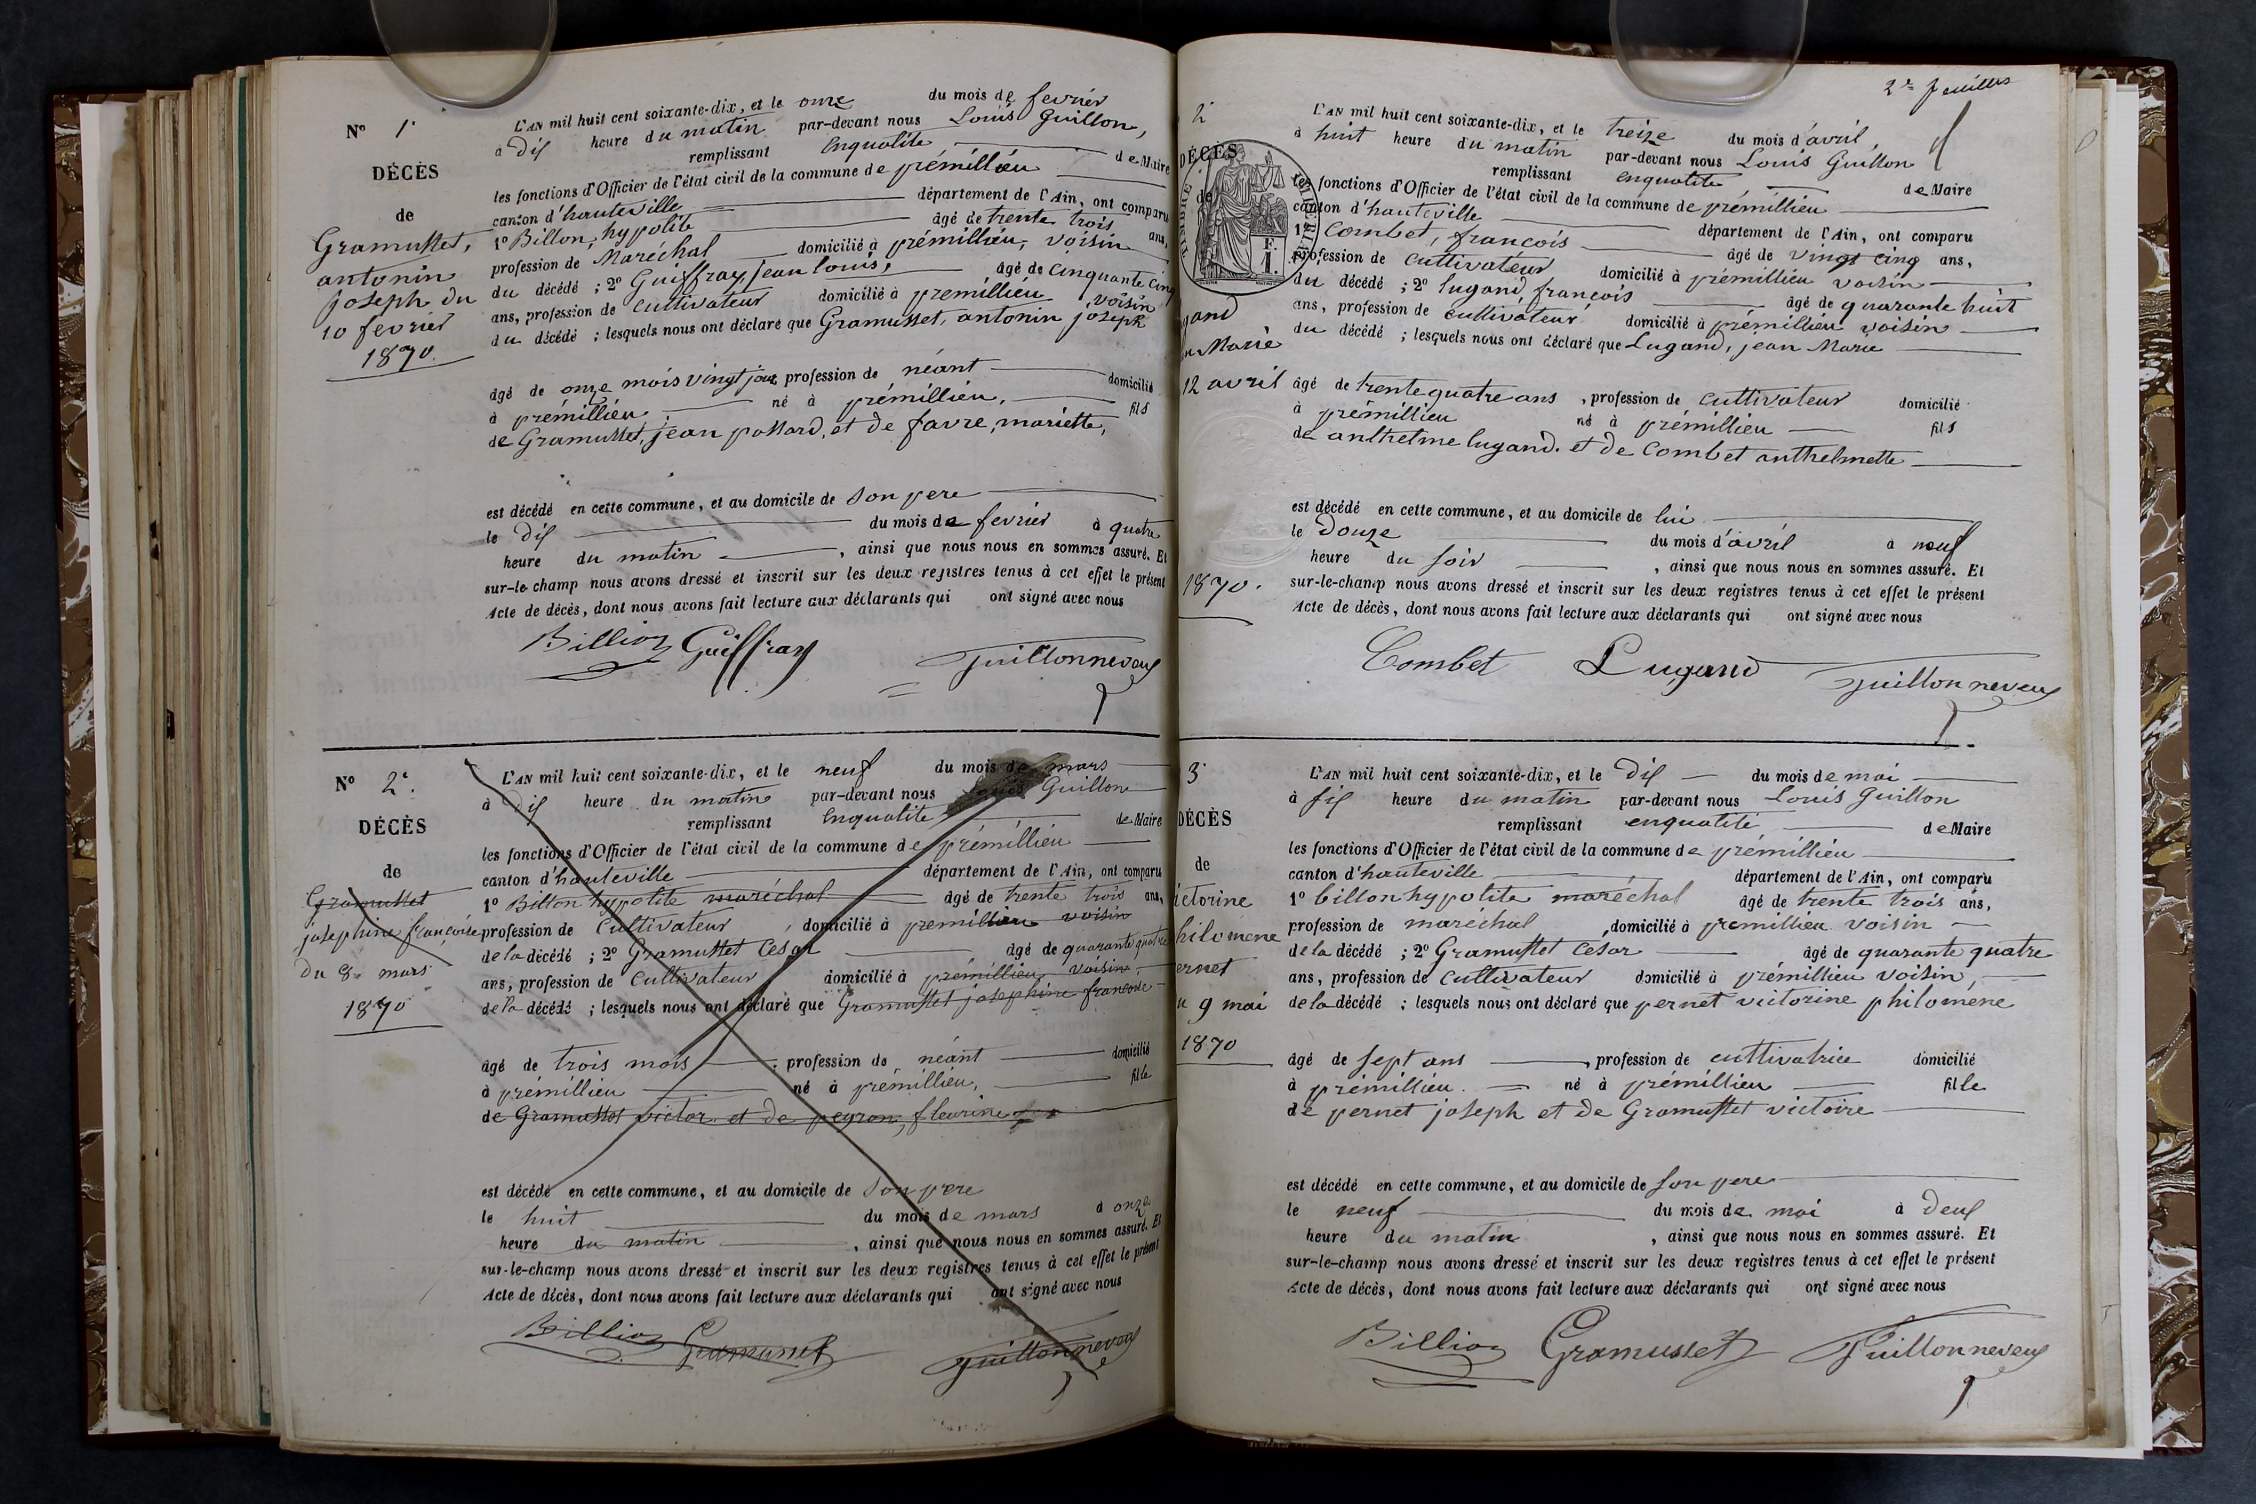 N° 1°
DÉCÈS
de
Gramusset,
antonin
joseph du
10 fevrier
1870
L'AN mil huit cent soixante-dix, et le onze du mois de fevrier
à dix heure du matin par-devant nous Louis Guillon,
remplissant enqualité de Maire
les fonctions d'Officier de l'état civil de la commune de prémillieu
canton d'hauteville département de l'Ain, ont comparu
1° Billon, hypolite âgé de trente trois ans,
profession de Maréchal domicilié à prémillieu, voisin
du décédé ; 2° Guiffray, jean louis, âgé de cinquante cinq
ans, profession de cultivateur domicilié à premillieu voisin
du décédé ; lesquels nous ont déclaré que Gramusset, antonin joseph
âgé de onze mois vingt jour, profession de néant domicilié
à prémillieu né à prémillieu, fils
de Gramusset, jean possard, et de favre, mariette,
est décédé en cette commune, et au domicile de son pere
le dix du mois de fevrier à quatre
heure du matin, ainsi que nous nous en sommes assuré. Et
sur-le-champ nous avons dressé et inscrit sur les deux registres tenus à cet effet le présent
Acte de décès, dont nous avons fait lecture aux déclarants qui ont signé avec nous
Billion Guiffray Guillonneveux
N° 2°
DÉCÈS
de
Gramusset
josephine françoise
du 8 mars
1870
L'AN mil huit cent soixante-dix, et le neuf du mois de mars
à dix heure du matin par-devant nous Louis Guillon
remplissant enqualité de Maire
les fonctions d'Officier de l'état civil de la commune de prémillieu
canton d'hauteville département de l'Ain, ont comparu
1° Billon hypolite maréchal âgé de trente trois ans,
profession de cultivateur, domicilié à premillieu voisin
de la décédé ; 2° Gramusset Cesar âgé de quarante quatre
ans, profession de cultivateur domicilié à prémillieu voisin
de la décédé ; lesquels nous ont déclaré que Gramusset josephine francoise
âgé de trois mois, profession de néant domicilié
à prémillieu né à prémillieu, fille
de Gramusset victor et de peyron, fleurine
est décédé en cette commune, et au domicile de son pere
le huit du mois de mars à onze
heure du matin, ainsi que nous nous en sommes assuré. Et
sur-le-champ nous avons dressé et inscrit sur les deux registres tenus à cet effet le présent
Acte de décès, dont nous avons fait lecture aux déclarants qui ont signé avec nous
Billion Gramusset Guillonneveux
2e feuillet
2°
DÉCÈS
de
gand
n Marie
12 avril
1870.
L'AN mil huit cent soixante-dix, et le treize du mois d'avril
à huit heure du matin par-devant nous Louis Guillon
remplissant enqualité de Maire
les fonctions d'Officier de l'état civil de la commune de prémillieu
canton d'hauteville département de l'Ain, ont comparu
1° Combet, françois âgé de vingt cinq ans,
profession de cultivateur domicilié à prémillieu voisin
du décédé ; 2° lugand françois âgé de quarante huit
ans, profession de cultivateur domicilié à prémillieu voisin
du décédé ; lesquels nous ont déclaré que Lugand, jean Marie
âgé de trente quatre ans, profession de cultivateur domicilié
à prémillieu né à prémillieu fils
de anthelme lugand. et de Combet anthelmette
est décédé en cette commune, et au domicile de lui
le douze du mois d'avril à neuf
heure du soir, ainsi que nous nous en sommes assuré. Et
sur-le-champ nous avons dressé et inscrit sur les deux registres tenus à cet effet le présent
Acte de décès, dont nous avons fait lecture aux déclarants qui ont signé avec nous
Combet Lugand Guillonneveux
3°
DÉCÈS
de
ictorine
hilomene
ernet
u 9 mai
1870
L'AN mil huit cent soixante-dix, et le dix du mois de mai
à six heure du matin par-devant nous Louis Guillon
remplissant enqualité de Maire
les fonctions d'Officier de l'état civil de la commune de prémillieu
canton d'hauteville département de l'Ain, ont comparu
1° billon hypolite maréchal âgé de trente trois ans,
profession de maréchal, domicilié à premillieu voisin
de la décédé ; 2° Gramusset Cesar âgé de quarante quatre
ans, profession de cultivateur domicilié à prémillieu voisin,
de la décédé ; lesquels nous ont déclaré que pernet victorine philomene
âgé de sept ans, profession de cultivatrice domicilié
à prémillieu. né à prémillieu fille
de pernet joseph et de Gramusset victoire
est décédé en cette commune, et au domicile de son pere
le neuf du mois de mai à deux
heure du matin, ainsi que nous nous en sommes assuré. Et
sur-le-champ nous avons dressé et inscrit sur les deux registres tenus à cet effet le présent
Acte de décès, dont nous avons fait lecture aux déclarants qui ont signé avec nous
Billion Gramusset Guillonneveux